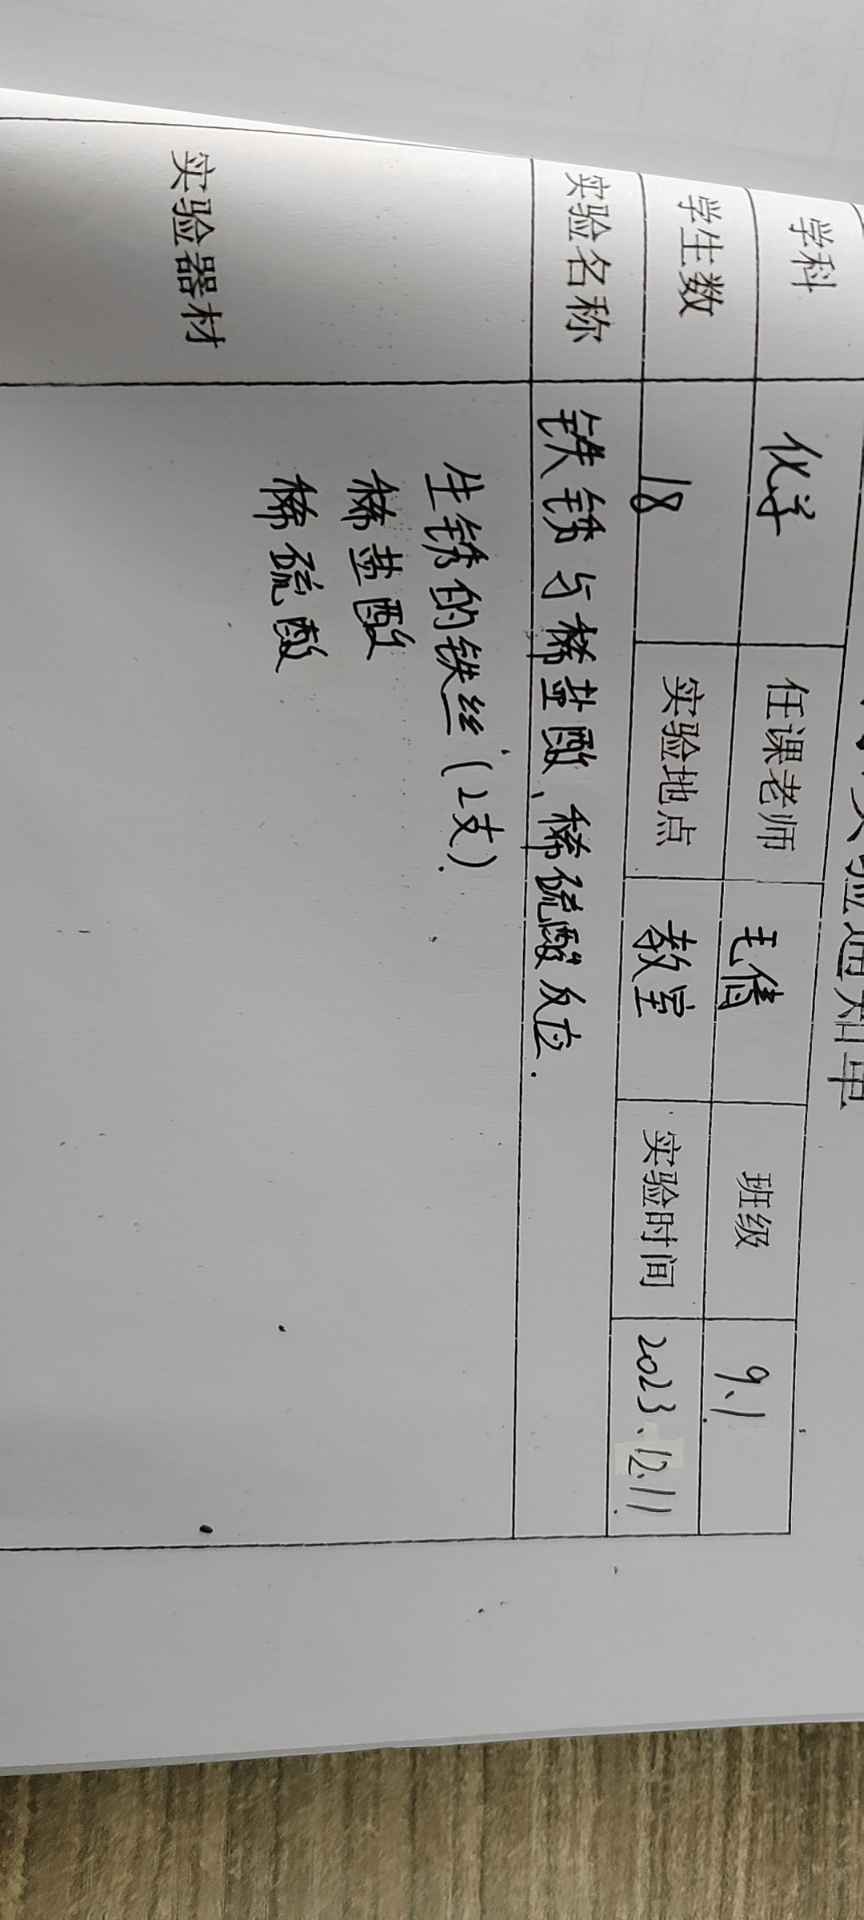 实验通知单
学科 化学 任课老师 毛倩 班级 9.1
学生数 18 实验地点 教室 实验时间 2023.12.11
实验名称 铁锈与稀盐酸、稀硫酸反应.
实验器材 生锈的铁丝(2支).
稀盐酸
稀硫酸